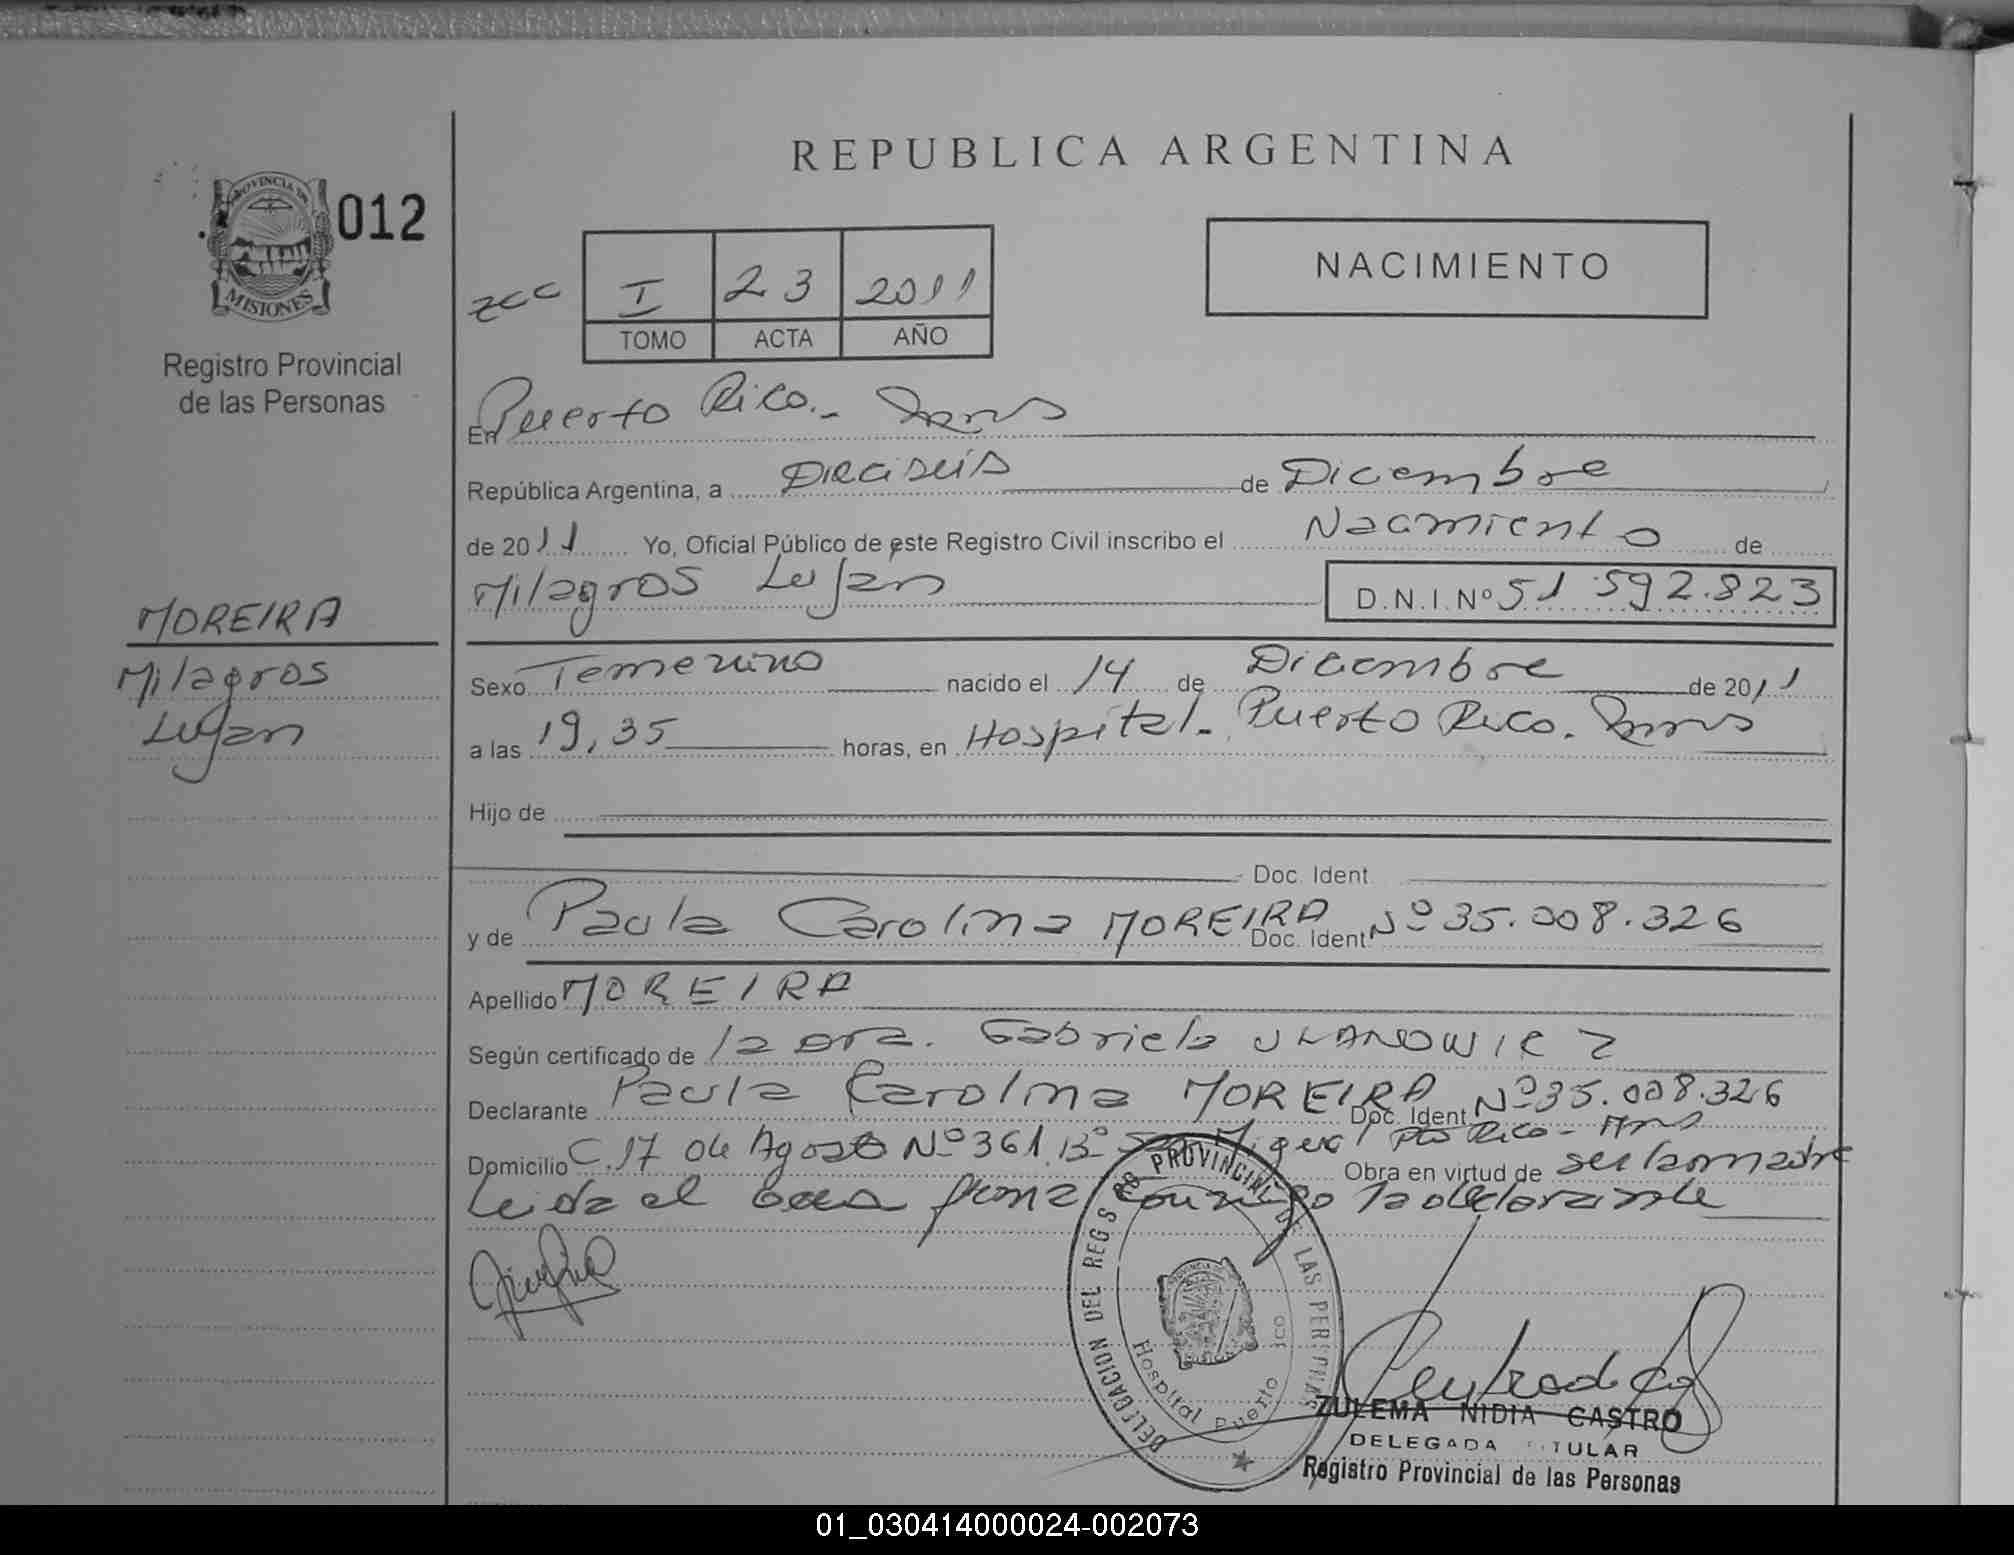 REPUBLICA ARGENTINA
PROVINCIA DE
MISIONES
012
Registro Provincial
de las Personas
zcc
I 23 2011
TOMO ACTA AÑO
NACIMIENTO
En Puerto Rico.- Mnes
República Argentina, a Dieciseis de Diciembre
de 2011 Yo, Oficial Público de este Registro Civil inscribo el Nacimiento de
Milagros Lujan D.N.I.Nº 51 592.823
MOREIRA
Milagros
Lujan
Sexo Femenino nacido el 14 de Diciembre de 2011
a las 19,35 horas, en Hospital-Puerto Rico. Mnes
Hijo de
Doc. Ident.
y de Paula Carolina MOREIRA Doc. Ident. Nº 35.008.326
Apellido MOREIRA
Según certificado de la Dra. Gabriela ULANOWICZ
Declarante Paula Carolina MOREIRA Doc. Ident. Nº 35.008.326
Domicilio C. 17 de Agosto Nº 361 Bº San Miguel Pto Rico - Mns Obra en virtud de ser la madre
Leida el acta firma conmigo la declarante
DELEGACION DEL REG PROVINCIAL DE LAS PERSONAS
Hospital Puerto ico
ZULEMA NIDIA CASTRO
DELEGADA TITULAR
Registro Provincial de las Personas
01_030414000024-002073